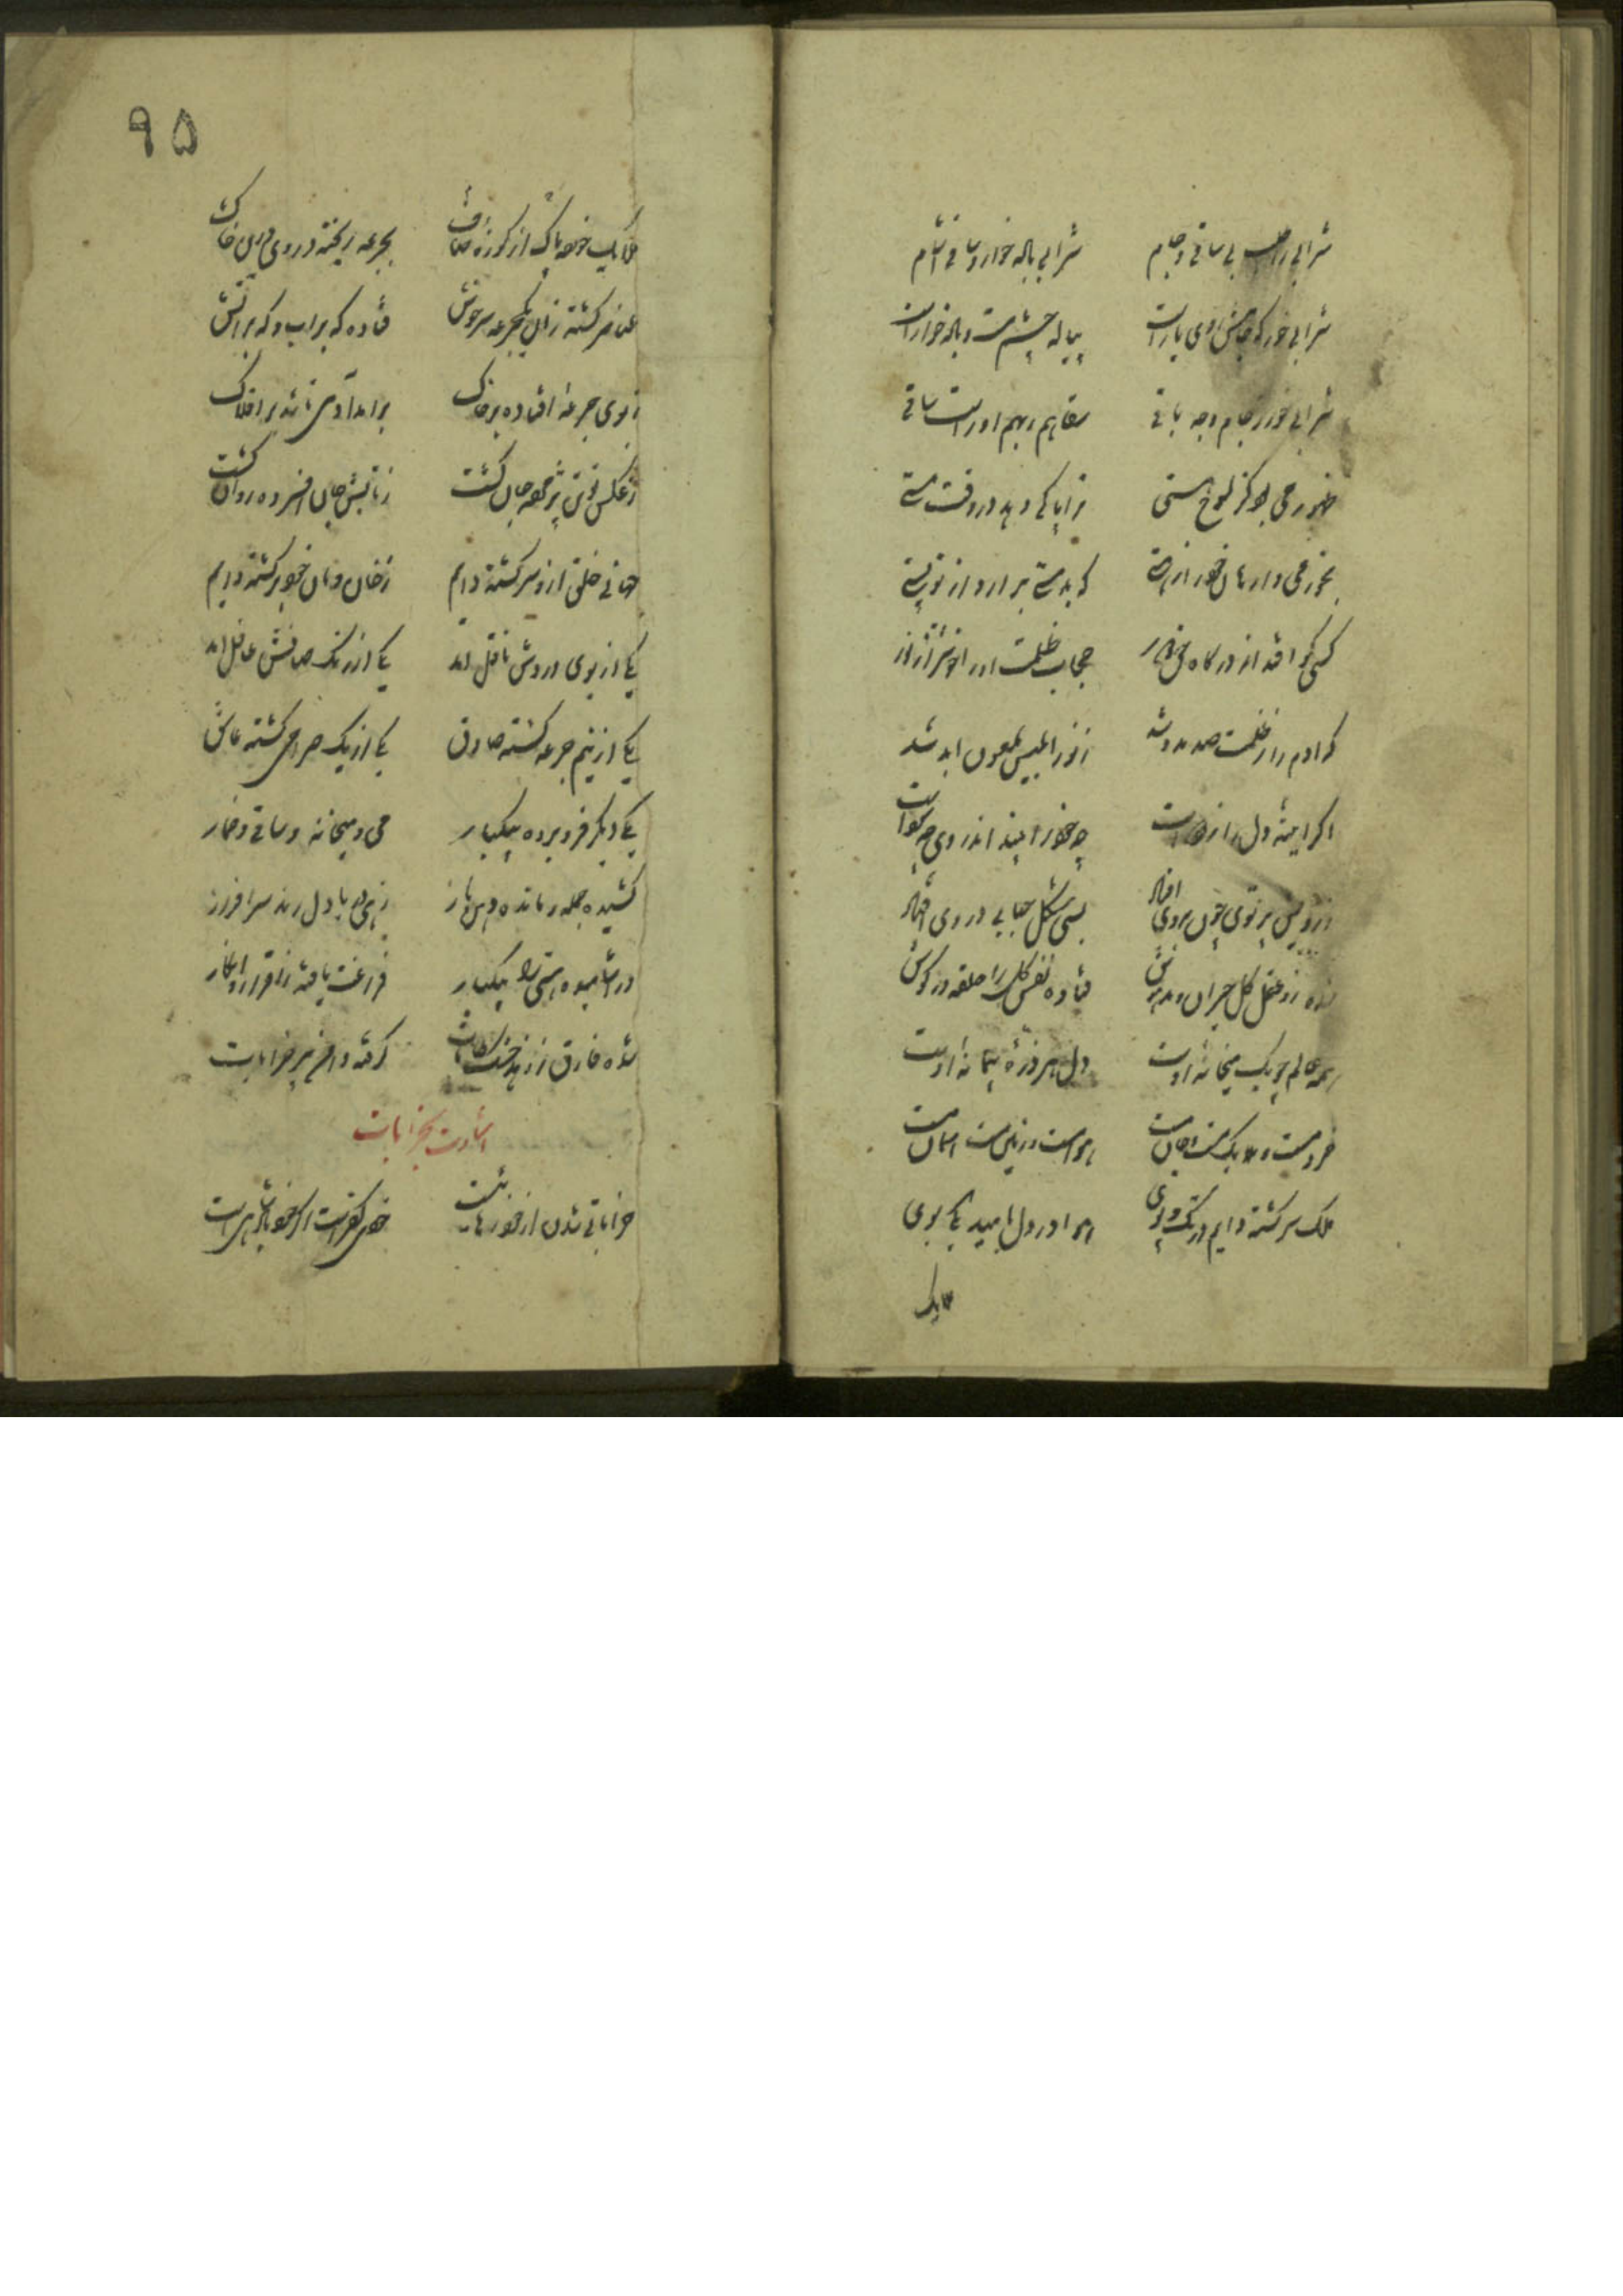 شرابی را طلب بی ساقی و جام شرابی باده خوار و ساقی آشام
شرابی خور که جامش روی یارست پیاله چشم مست باده خوارست
شرابی خور ز جام وجه باقی سقاهم ربهم او راست ساقی
طهور می بود کز لوث هستی ترا پاکی دهد در وقت مستی
بخور می وارهان خود را ز پستی که بدمستی
کسی کو افتد از درگاه حق دور حجاب ظلمت او را بهتر از نور
که ادم را ز ظلمت صد مدد شد ز نور ابلیس ملعون ابد شد
اگر اینه دل را زدودست چو خود را بیند اندر وی چه سودست
ز رویش پرتوی چون بر وی افتاد بسی شکل حبابی در وی افتاد
شده زو عقل کل حیران و مدهوش فتاده نفس کل را حلقه در گوش
همه عالم چو یک میخانه اوست دل هر ذره پیمانه اوست
خرد مست و ملایک مست و جان مست هوا مست و زمین مست اسمان مست
فلک سرگشته دایم در تک و پوی هوا در دل بامید یکی بوی
ملایک
۹۵
ملایک خورده پاک از کوزه صاف بجرعه ریخته دردی برین خاک
عناصر گشته زان یکجرعه سرخوش فتاده گه براب و گه براتش
ز بوی جرعه افتاده بر خاک برامد آدمی تا شد بر افلاک
ز عکس او تن پژمرده جان گشت ز تابش جان افسرده روان گشت
جهانی خلق ازو سرگشته دایم ز خان و مان خود برگشته دایم
یکی از بوی دردش ناقل امد یکی از رنگ صافش عاقل امد
یکی از نیم جرعه گشته صادق یکی از یک صراحی گشته عاشق
یکی دیگر فرو برده بیکبار می و میخانه و ساقی و خمار
کشیده جمله و مانده دهن باز زهی دریا دل رند سرافراز
در اشامیده هستی را بیکبار فراغت یافته ز اقرار و انکار
شده فارق ز زهد خشک و طامات گرفته دامن پیر خرابات
اشارت بخرابات
خراباتی شدن از خود رهاییست خودی کفرست اگر خود پارساییست